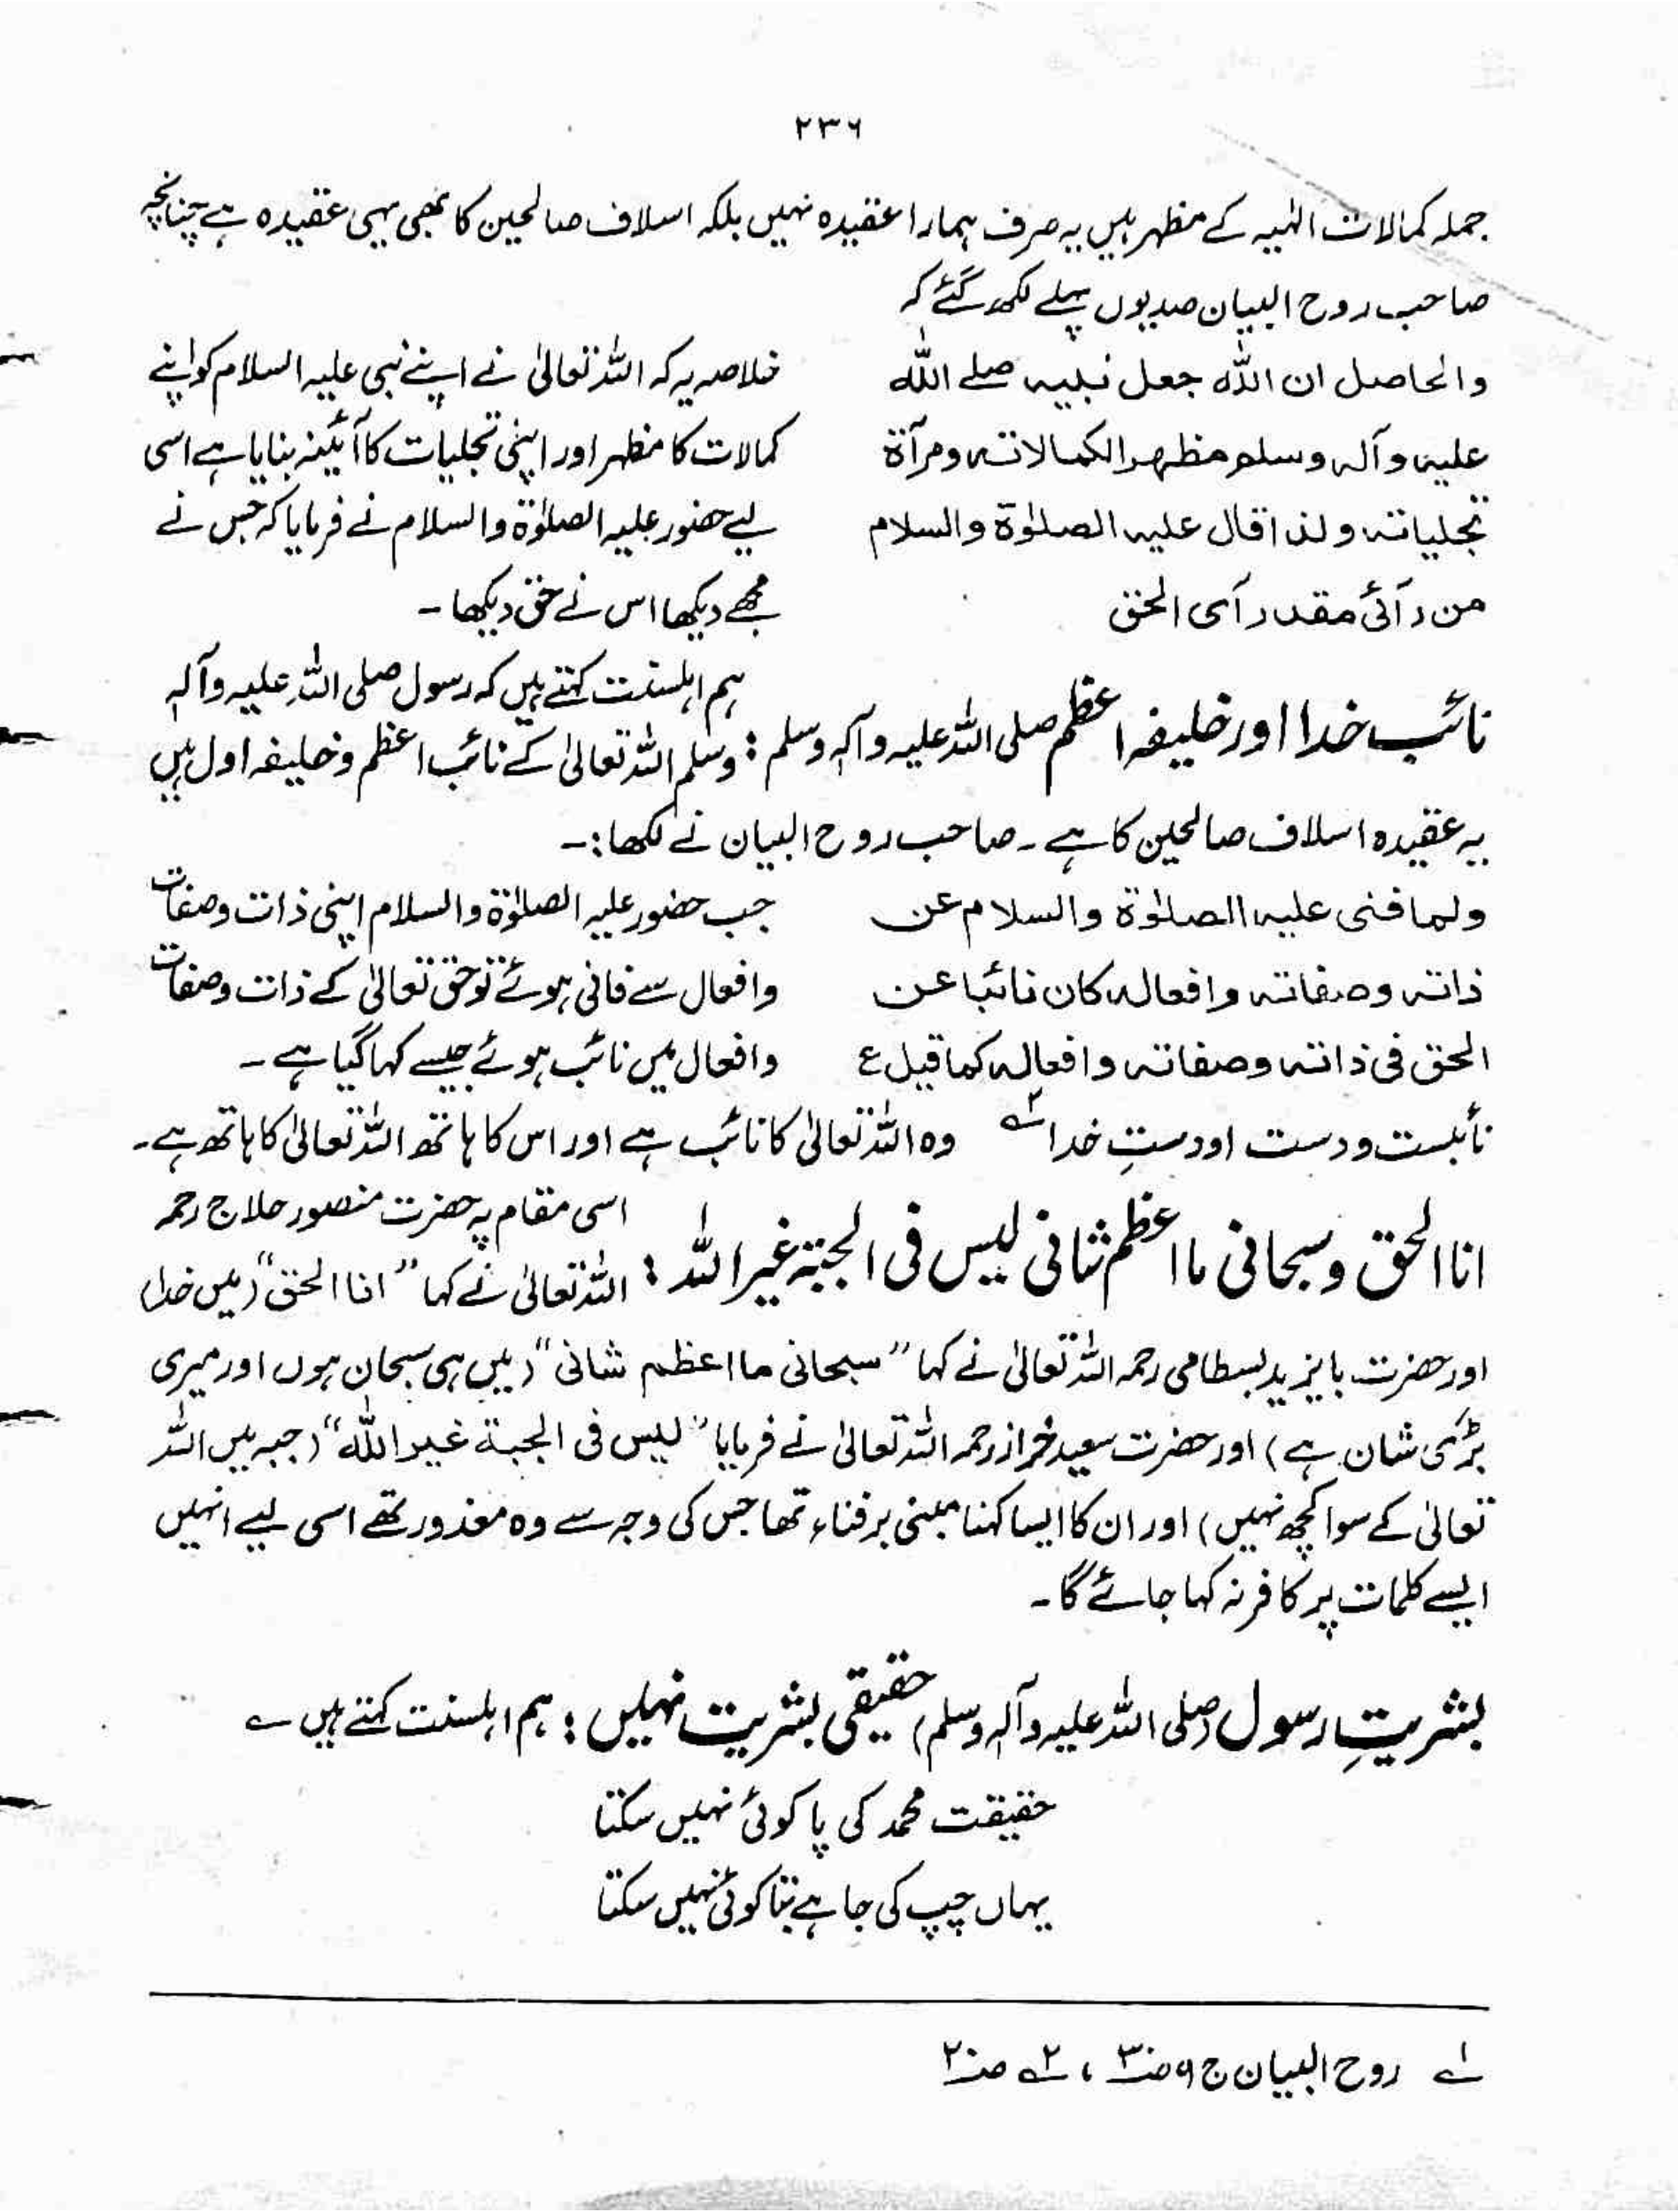 ۲۳۶
جملہ کمالات الٰہیہ کے مظہر ہیں یہ صرف ہمارا عقیدہ نہیں بلکہ اسلاف صالحین کا بھی یہی عقیدہ ہے چنانچہ
صاحب روح البیان صدیوں پہلے لکھ گئے کہ
والحاصل ان اللہ جعل نبیہ صلے اللہ
علیہ وآلہ وسلم مظہرا لکمالاتہ ومرآۃ
تجلیاتہ ولذا قال علیہ الصلوٰۃ والسلام
من رآنی مقدر آی الحق
خلاصہ یہ کہ اللہ تعالیٰ نے اپنے نبی علیہ السلام کو اپنے
کمالات کا مظہر اور اپنی تجلیات کا آئینہ بنایا ہے اسی
لیے حضور علیہ الصلوٰۃ والسلام نے فرمایا کہ جس نے
مجھے دیکھا اس نے حق دیکھا ۔
نائب خدا اور خلیفہ اعظم صلی اللہ علیہ وآلہ وسلم :
ہم اہلسنت کہتے ہیں کہ رسول صلی اللہ علیہ وآلہ
وسلم اللہ تعالیٰ کے نائب اعظم و خلیفہ اول ہیں
یہ عقیدہ اسلاف صالحین کا ہے ۔ صاحب روح البیان نے لکھا :۔
ولما فنی علیہ الصلوٰۃ والسلام عن
ذاتہ وصفاتہ وافعالہ کان نائبا عن
الحق فی ذاتہ وصفاتہ وافعالہ کما قیل ع
جب حضور علیہ الصلوٰۃ والسلام اپنی ذات وصفات
وافعال سے فانی ہوئے تو حق تعالیٰ کے ذات وصفات
وافعال میں نائب ہوئے جیسے کہا گیا ہے ۔
نائبست ودست او دستِ خدا ۲؎ وہ اللہ تعالیٰ کا نائب ہے اور اس کا ہاتھ اللہ تعالیٰ کا ہاتھ ہے ۔
انا الحق وسبحانی ما اعظم ثنانی لیس فی الجبۃ غیر اللہ :
اسی مقام پہ حضرت منصور حلاج رحمہ
اللہ تعالیٰ نے کہا ”انا الحق“ (میں خدا)
اور حضرت بایزید بسطامی رحمہ اللہ تعالیٰ نے کہا ”سبحانی ما اعظم شانی“ (میں ہی سبحان ہوں اور میری
بڑی شان ہے) اور حضرت سعید خراز رحمہ اللہ تعالیٰ نے فرمایا ”لیس فی الجبۃ غیر اللہ“ (جبہ میں اللہ
تعالیٰ کے سوا کچھ نہیں) اور ان کا ایسا کہنا مبنی برفناء تھا جس کی وجہ سے وہ معذور تھے اسی لیے انہیں
ایسے کلمات پر کافر نہ کہا جائے گا ۔
بشریتِ رسول (صلی اللہ علیہ وآلہ وسلم) حقیقی بشریت نہیں : ہم اہلسنت کہتے ہیں ے
حقیقت محمد کی پا کوئی نہیں سکتا
یہاں چپ کی جا ہے بتا کوئی نہیں سکتا
۱؎ روح البیان ج ۹ صـ۳ ، ۲؎ صـ۲